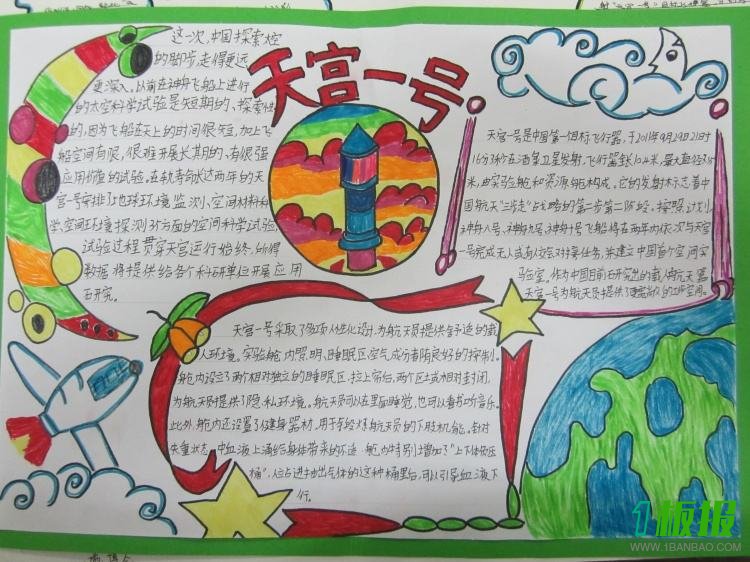 天宫一号
这一次,中国探索太空
的脚步,走得更远
更深入。以前在神舟飞船上进行
的太空科学试验是短期的、探索性
的,因为飞船在天上的时间很短,加上飞
船空间有限,很难开展长期的、有很强
应用价值的试验。在轨寿命长达两年的天
宫一号安排了地球环境监测、空间材料科
学、空间环境探测3方面的空间科学试验
试验过程贯穿天宫运行始终,所得
数据将提供给各个科研单位开展应用
研究。
天宫一号是中国第一个目标飞行器,于2011年9月29日21时
16分3秒在酒泉卫星发射,飞行器全长10.4米,最大直径3.35
米,由实验舱和资源舱构成。它的发射标志着中
国航天“三步走”战略的第二步第二阶段。按照计划,
神舟八号、神舟九号、神舟十号飞船将在两年内依次与天宫
一号完成无人或有人交会对接任务,并建立中国首个空间实
验室。作为中国目前研究出的载人航天器
天宫一号为航天员提供了的工作空间。
天宫一号采取了多项人性化设计,为航天员提供合予适的载
人环境。实验舱内照明、睡眠区、空气成分者防良好的控制。
舱内设立了两个相对独立的睡眠区,拉上帘后,两个区域相对封闭,
为航天员提供了隐私环境。航天员可以在里面睡觉,也可以看书听音乐。
此外,舱内还设置了健身器材,用于车锻炼航天员的下肢机能。针对
失重状态,中血液上涌给身体带来的不适,舱内特别增加了“上下体负压
桶”,人站进抽出气体的这种桶里后,可以引导血液下
行。
板报
WWW.1BANBAO.COM